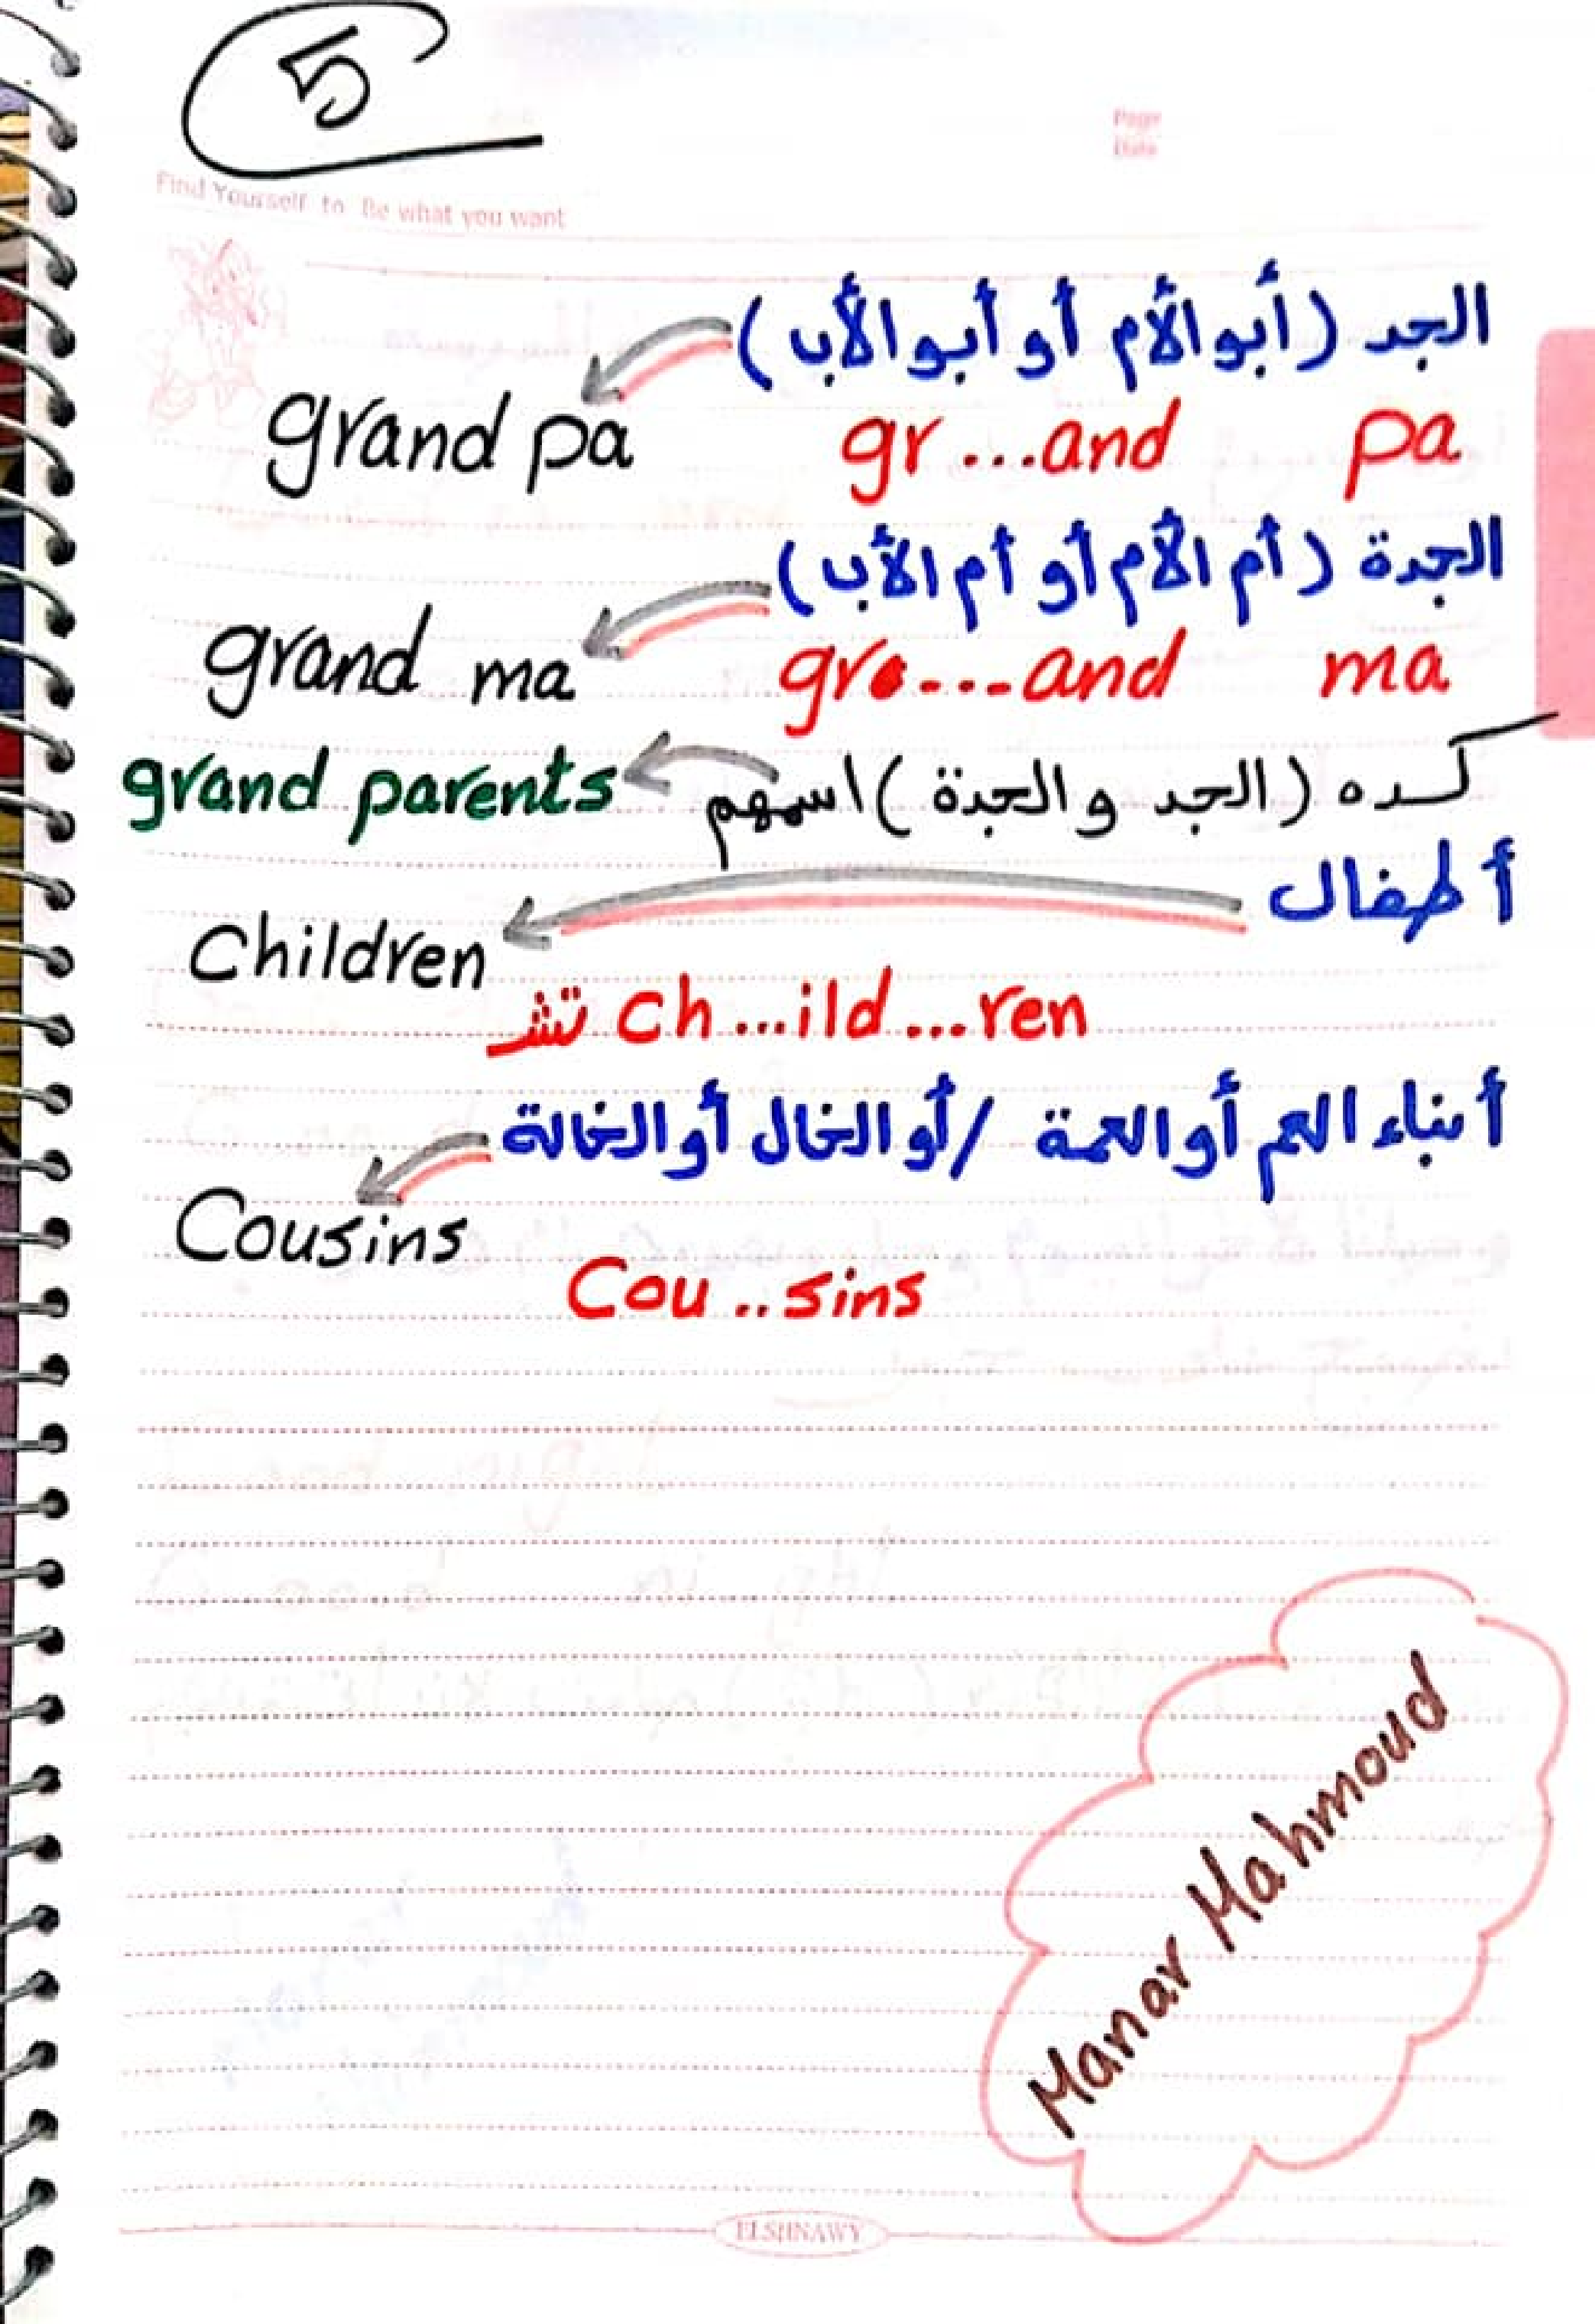 5
Page
Date
Find Yourself to Be what you want
الجد (أبو الأم أو أبو الأب)
grand pa gr...and pa
الجدة (أم الأم أو أم الأب)
grand ma gr---and ma
كده (الجد والجدة) اسمهم grand parents
أطفال
Children
تشـ ch...ild...ren
أبناء العم أو العمة / أو الخال أو الخالة
Cousins
Cou..sins
Manar Mahmoud
ELSHNAWY